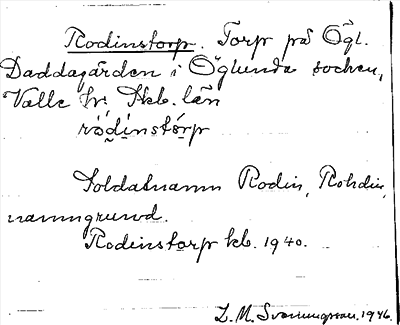 Rodinstorp. Torp på Ögl.
Daddagården i Öglunda socken,
Valle hr, Skb. län
rödinstórp
Soldatnamn Rodin, Rohdin,
namngrund.
Rodinstorp kb. 1940.
L. M. Svanungsson. 1946.